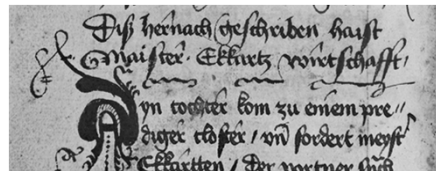 Diß hernach geschriben haist
Maister Ekkartz wirtschafft
Ayn tochter kom zu einem pre//
diger closter / vñ fordert meyst'
Ekkartten / der portner sprach